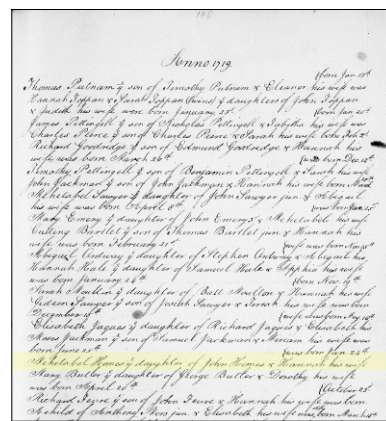 Anno 1719
(born Jan 15th
Thomas Putnam ȳ son of Timothy Putnam & Eleanor his wife was
Hannah Toppan & Sarah Toppan (twins) ȳ daughters of John Toppan
& Judith his wife were born January 23d
James Pettingell ȳ son of Nicholas Pettingell & Tabitha his wife was
Charles Peirce ȳ son of Charles Peirce & Sarah his wife born Feb 2d
Richard Goodridge ȳ son of Edmund Goodridge & Hannah his
wife was born March 26th
Timothy Pettingell ȳ son of Benjamin Pettingell & Sarah his wife
John Jackman ȳ son of John Jackman & Hannah his wife born
Mehetabel Sawyer ȳ daughter of John Sawyer jun & Abigail
his wife was born April 6th
Mary Emery ȳ daughter of John Emery & Mehetabel his wife
Cutting Bartlet ȳ son of Thomas Bartlet jun & Hannah his
wife was born February 21st
Abigail Ordway ȳ daughter of Stephen Ordway & Abigail his
Hannah Hale ȳ daughter of Samuel Hale & Apphia his wife
was born January 24th
Sarah Moulton ȳ daughter of Batt Moulton & Hannah his wife
Gideon Sawyer ȳ son of Josiah Sawyer & his wife was born
December 15th
Elisabeth Jaques ȳ daughter of Richard Jaques & Elisabeth his
Moses Jackman ȳ son of Samuel Jackman & Meriam his wife was
born June 25th (was born Jan 24th
Mehetabel Homes ȳ daughter of John Homes & Hannah his wife
Mary Butler ȳ daughter of George Butler & Dorothy his wife
was born April 20th (October 23d
Richard Peirce ȳ son of John Peirce & Hannah his wife was born
A child of Anthony Mors jun & Elisabeth his wife was born March